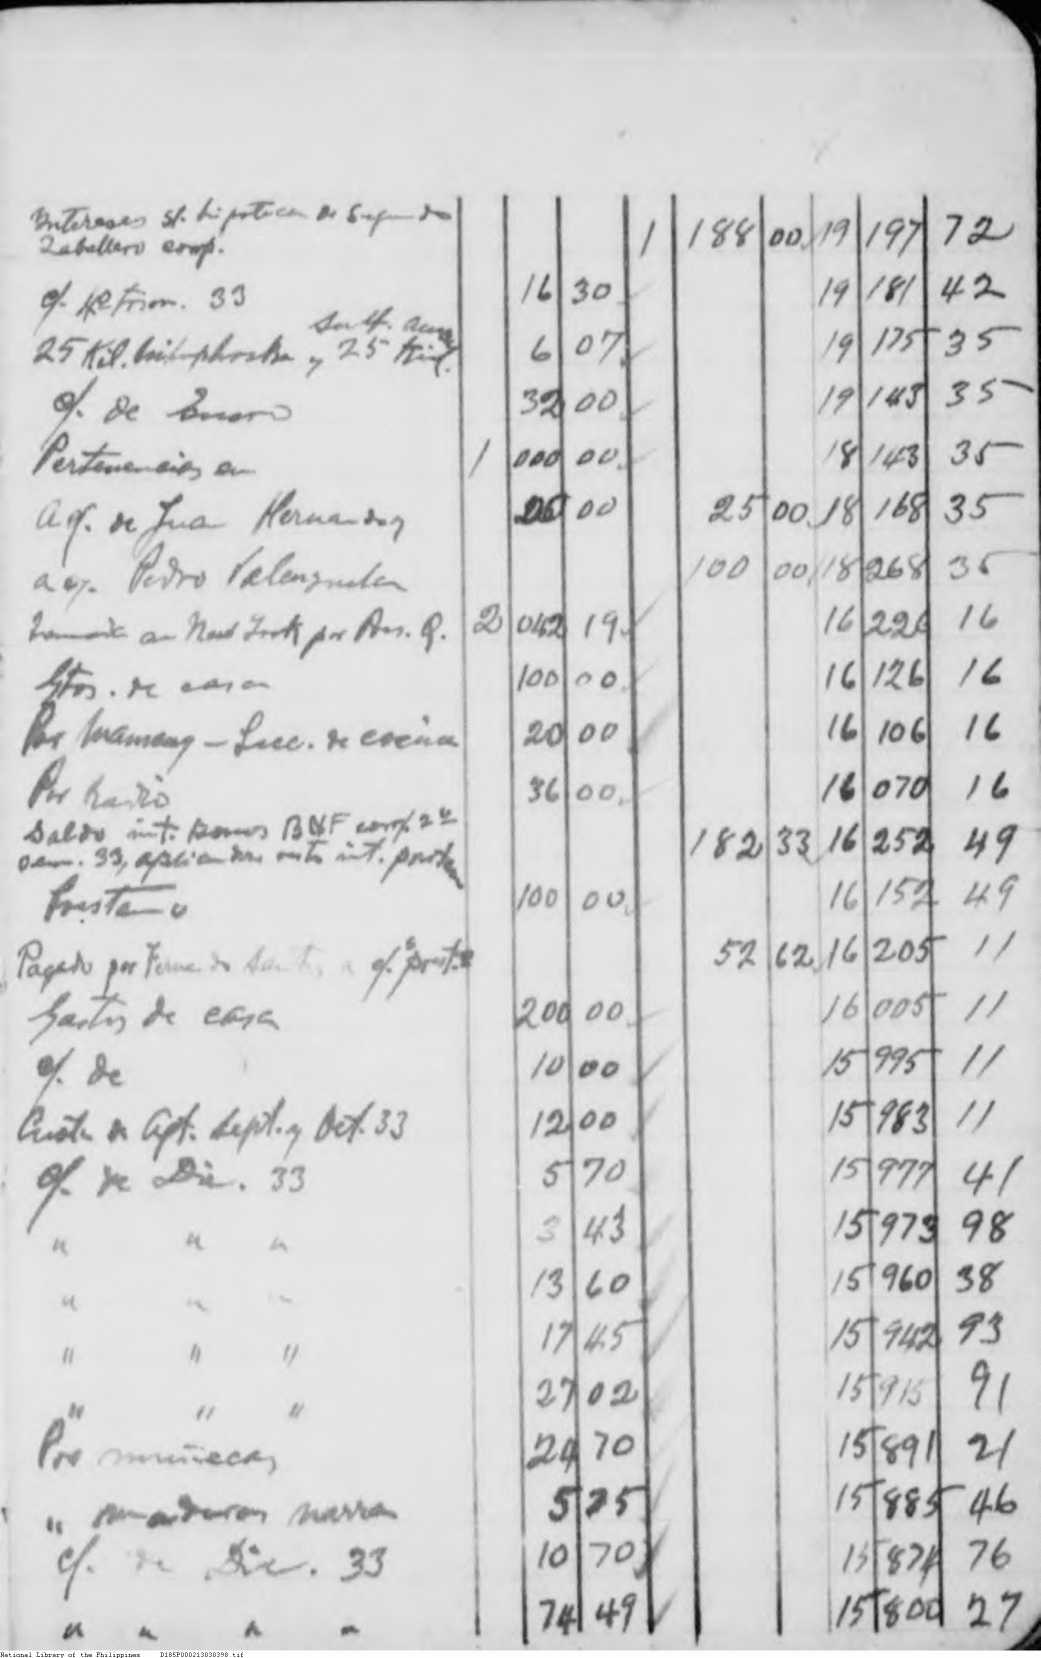 Intereses st. hipoteca de Segundo
Zaballero comp. 1 188 00 19 197 72
c/. 33 16 30 19 181 42
sulf.
25 Kil. y 25 Kil. 6 07 19 175 35
c/. de Enero 32 00 19 143 35
Pertenencias en 1 000 00 18 143 35
a c/. de Juan Hernandez 00 25 00 18 168 35
a c/. Pedro Valenzuela 100 00 18 268 35
en New York por 2 042 19 16 226 16
Gtos. de casa 100 00 16 126 16
Por Mameng - Lecc. de cocina 20 00 16 106 16
Por Radio 36 00 16 070 16
Saldo int. Bonos comp. 2º
sem. 33, int. 182 33 16 252 49
Prestamo 100 00 16 152 49
Pagado por Fernando Santos a c/. prest. 52 62 16 205 11
Gastos de casa 200 00 16 005 11
c/. de 10 00 15 995 11
Cuota de Agt. Sept. y Oct. 33 12 00 15 983 11
c/. de Dic. 33 5 70 15 977 41
" " " 3 43 15 973 98
" " " 13 60 15 960 38
" " " 17 45 15 942 93
" " " 27 02 15 915 91
Por muñecas 24 70 15 891 21
" narra 5 75 15 885 46
c/. de Dic. 33 10 70 15 874 76
" " " " 74 49 15 800 27
National Library of the Philippines D185P000213030390.tif